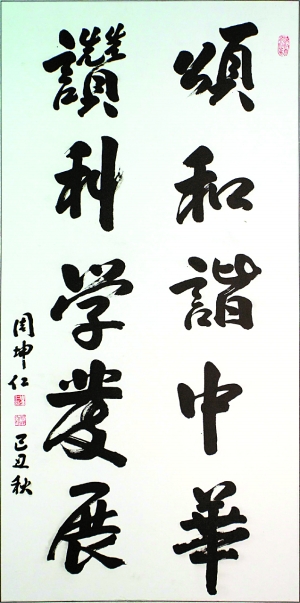 頌和諧中華
讚科学發展
周坤仁
己丑秋